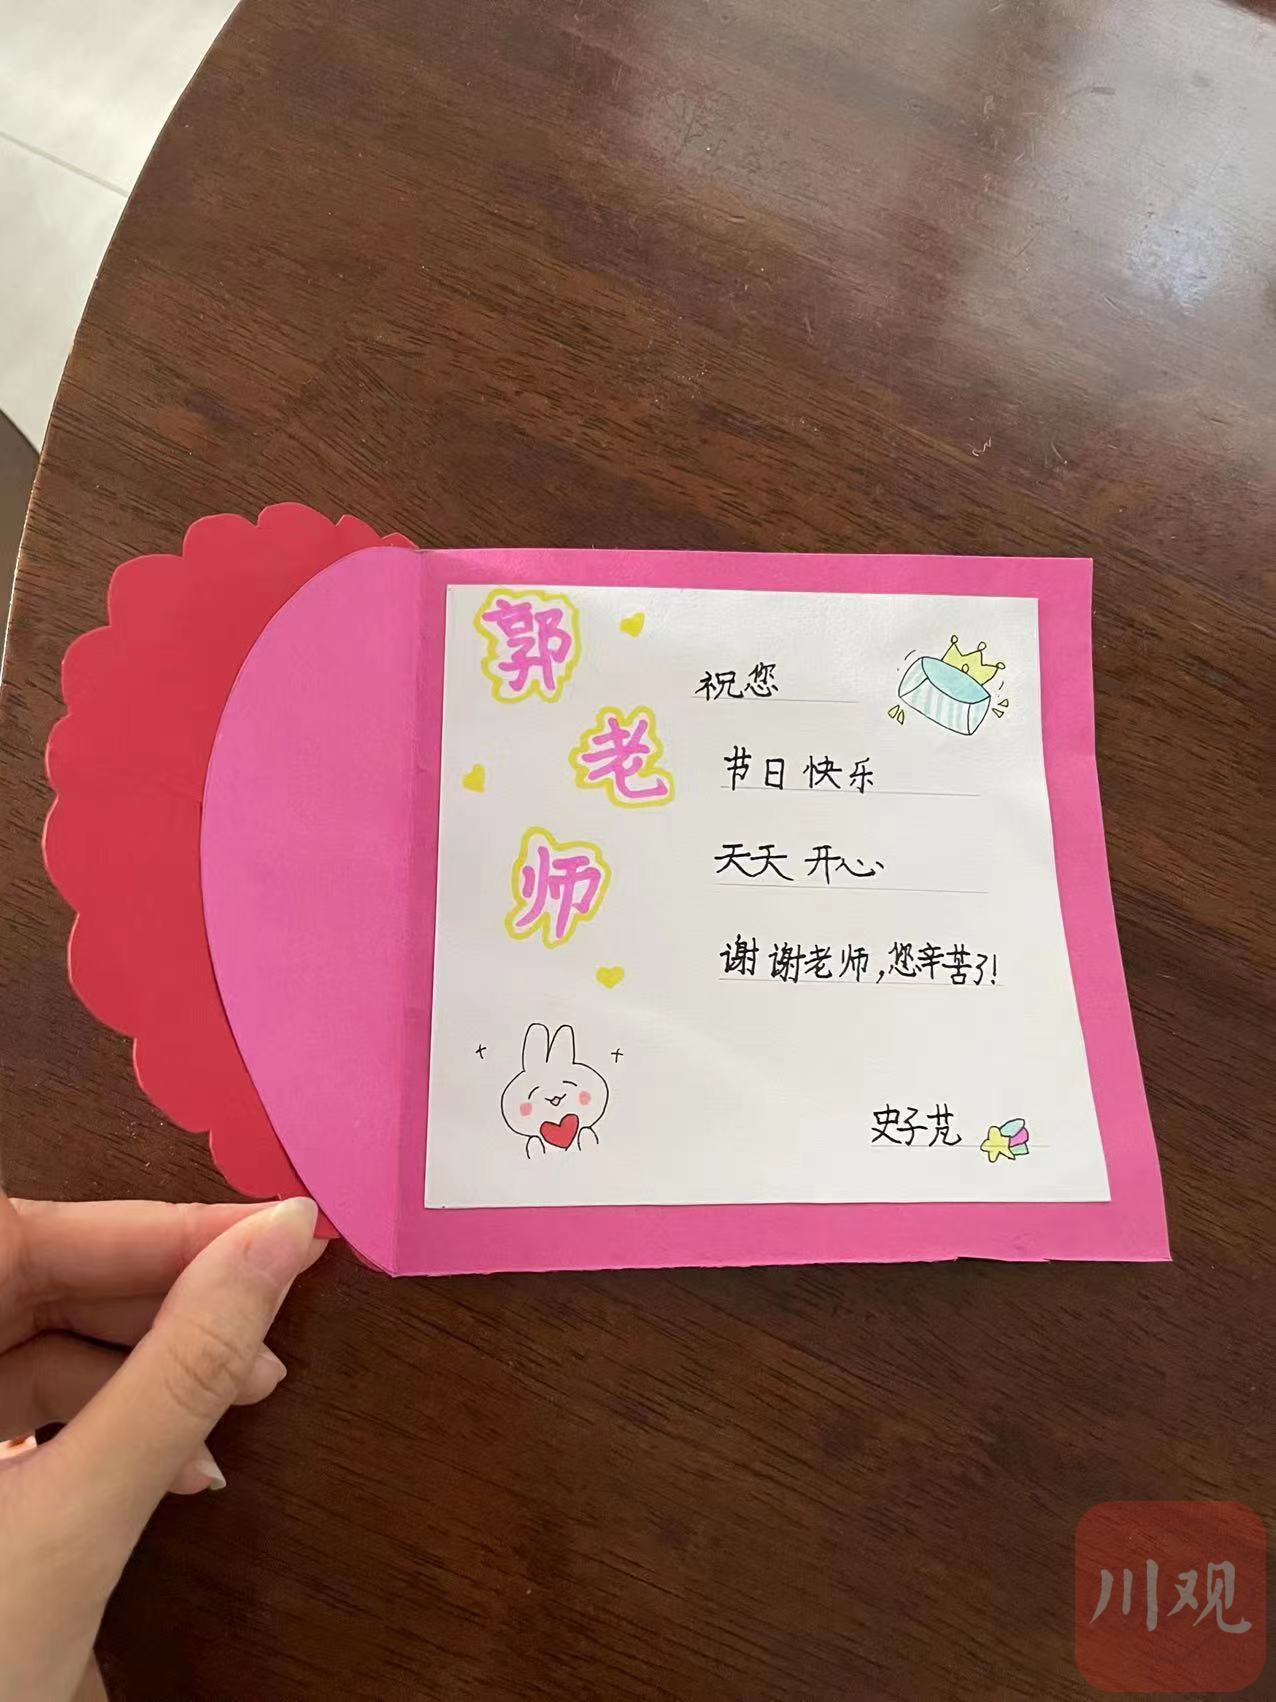 郭
老
师
祝您
节日快乐
天天开心
谢谢老师,您辛苦了!
史子芃
川观